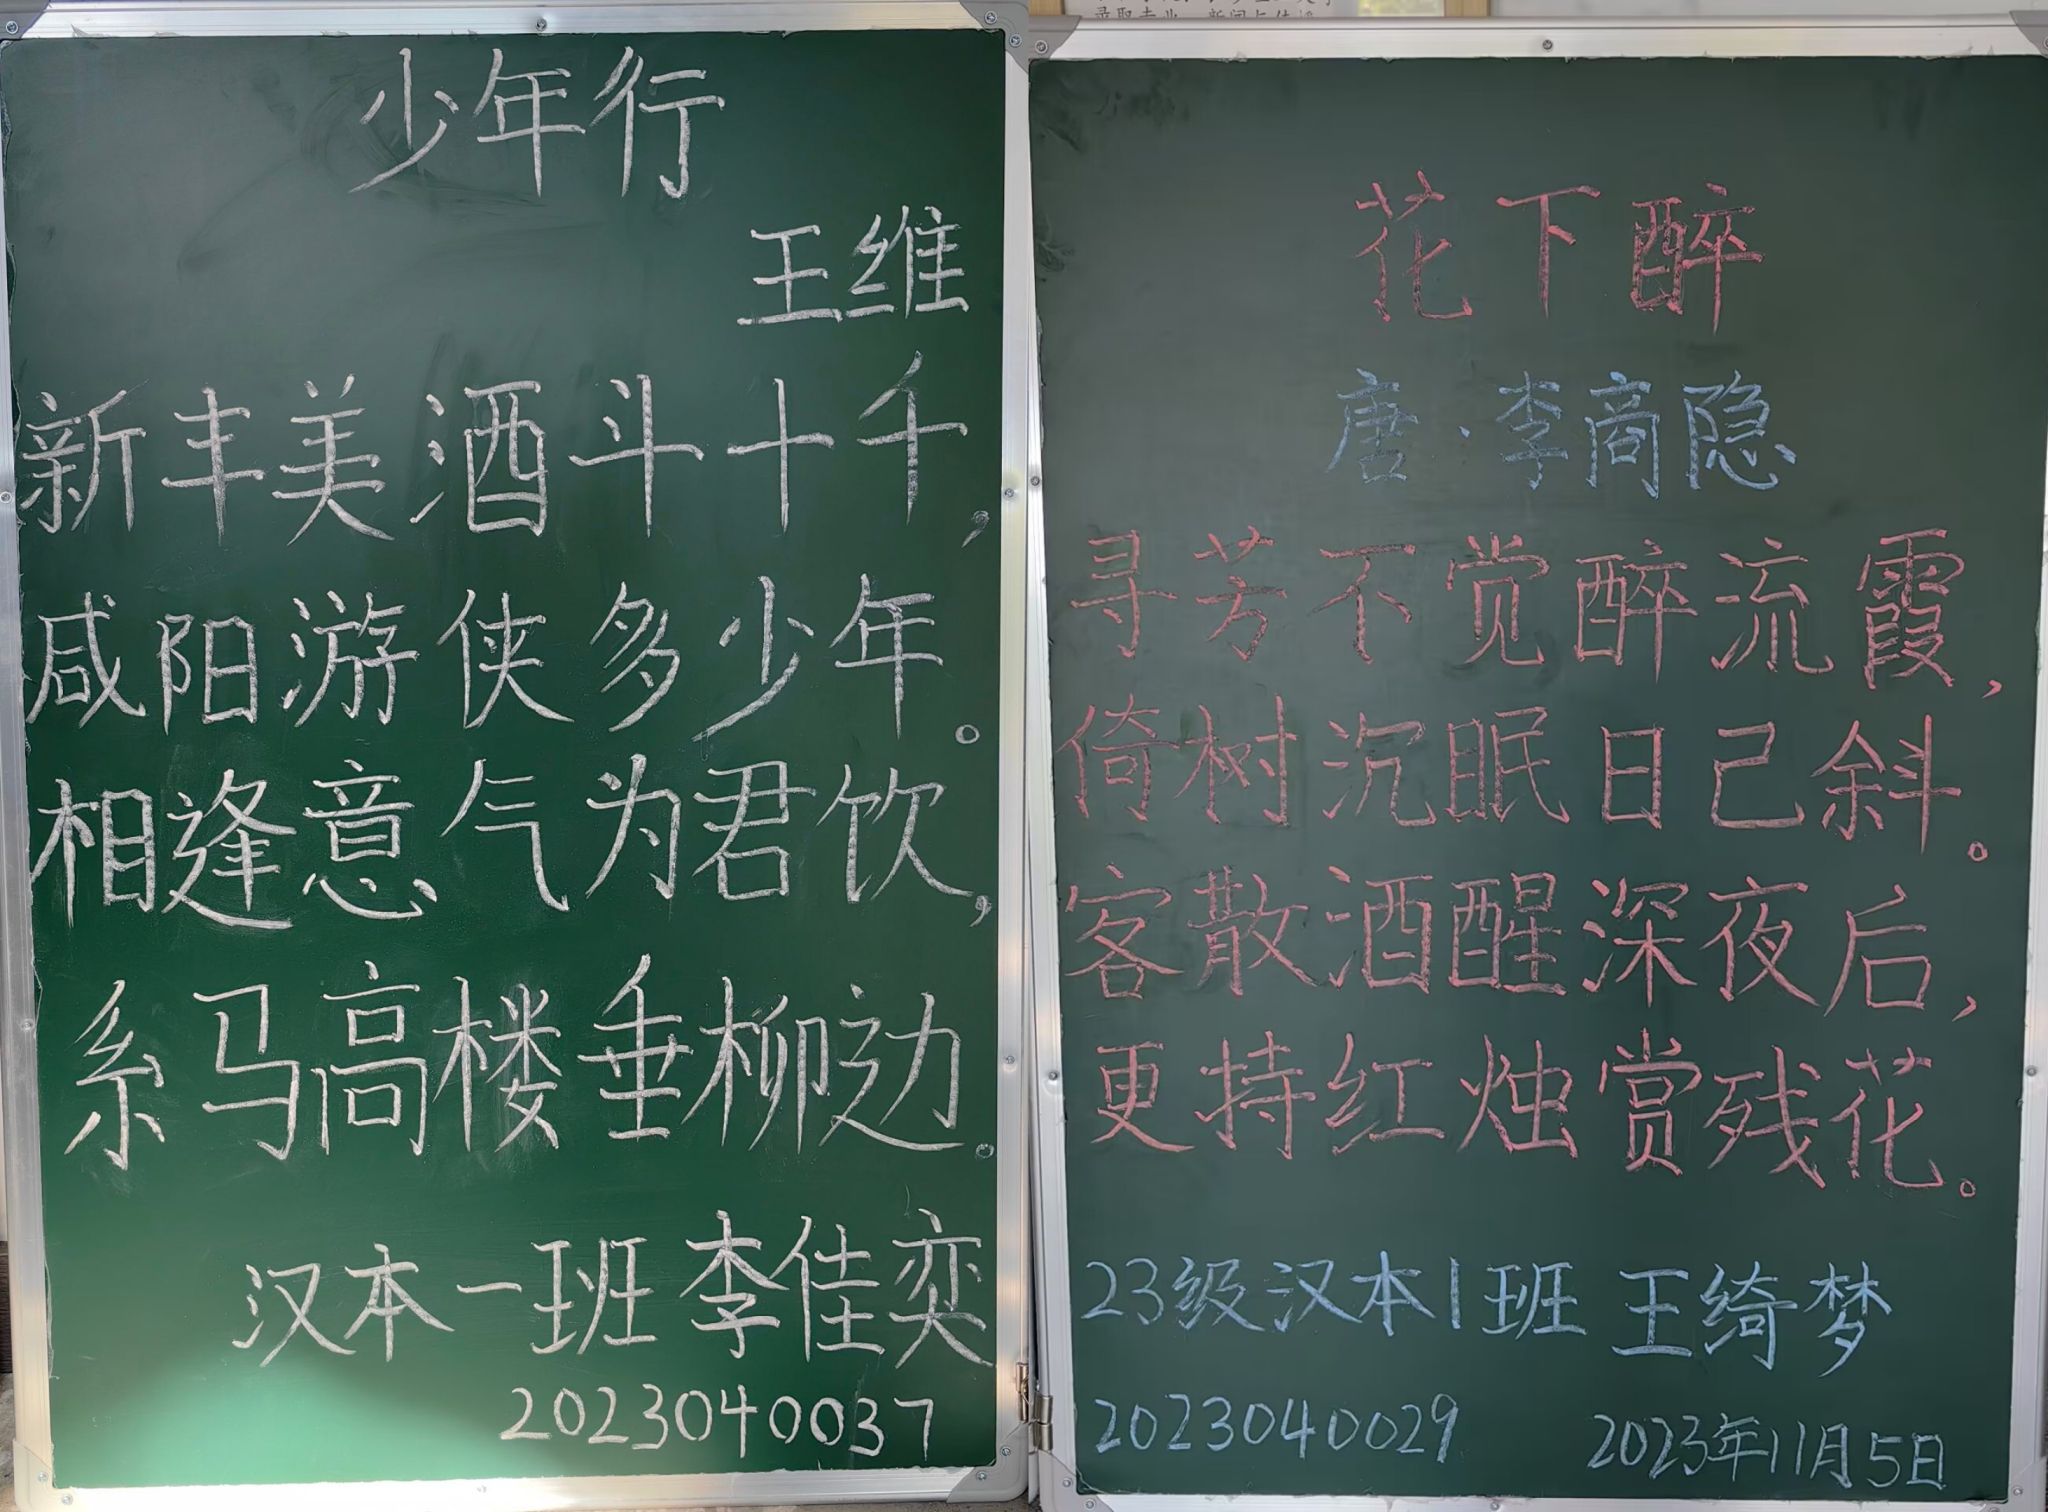 少年行
王维
新丰美酒斗十千,
咸阳游侠多少年。
相逢意气为君饮,
系马高楼垂柳边。
汉本一班李佳奕
2023040037
花下醉
唐·李商隐
寻芳不觉醉流霞,
倚树沉眠日己斜。
客散酒醒深夜后,
更持红烛赏残花。
23级汉本1班 王绮梦
2023040029 2023年11月5日